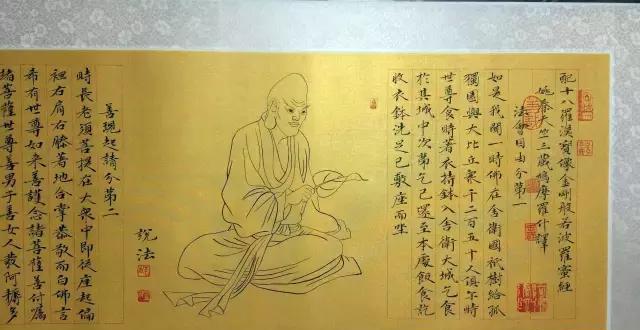 配十八羅漢寶像金剛般若波羅蜜經
姚秦天竺三藏鳩摩羅什譯
法會因由分第一
如是我聞一時佛在舍衛國祇樹給孤
獨園與大比丘衆千二百五十人俱尔時
世尊食時著衣持鉢入舍衛大城乞食
於其城中次第乞已還至本處飯食訖
收衣鉢洗足已敷座而坐
說法
善現起請分第二
時長老須菩提在大衆中即從座起偏
袒右肩右膝著地合掌恭敬而白佛言
希有世尊如來善護念諸菩薩善付囑
諸菩薩世尊善男子善女人發阿耨多